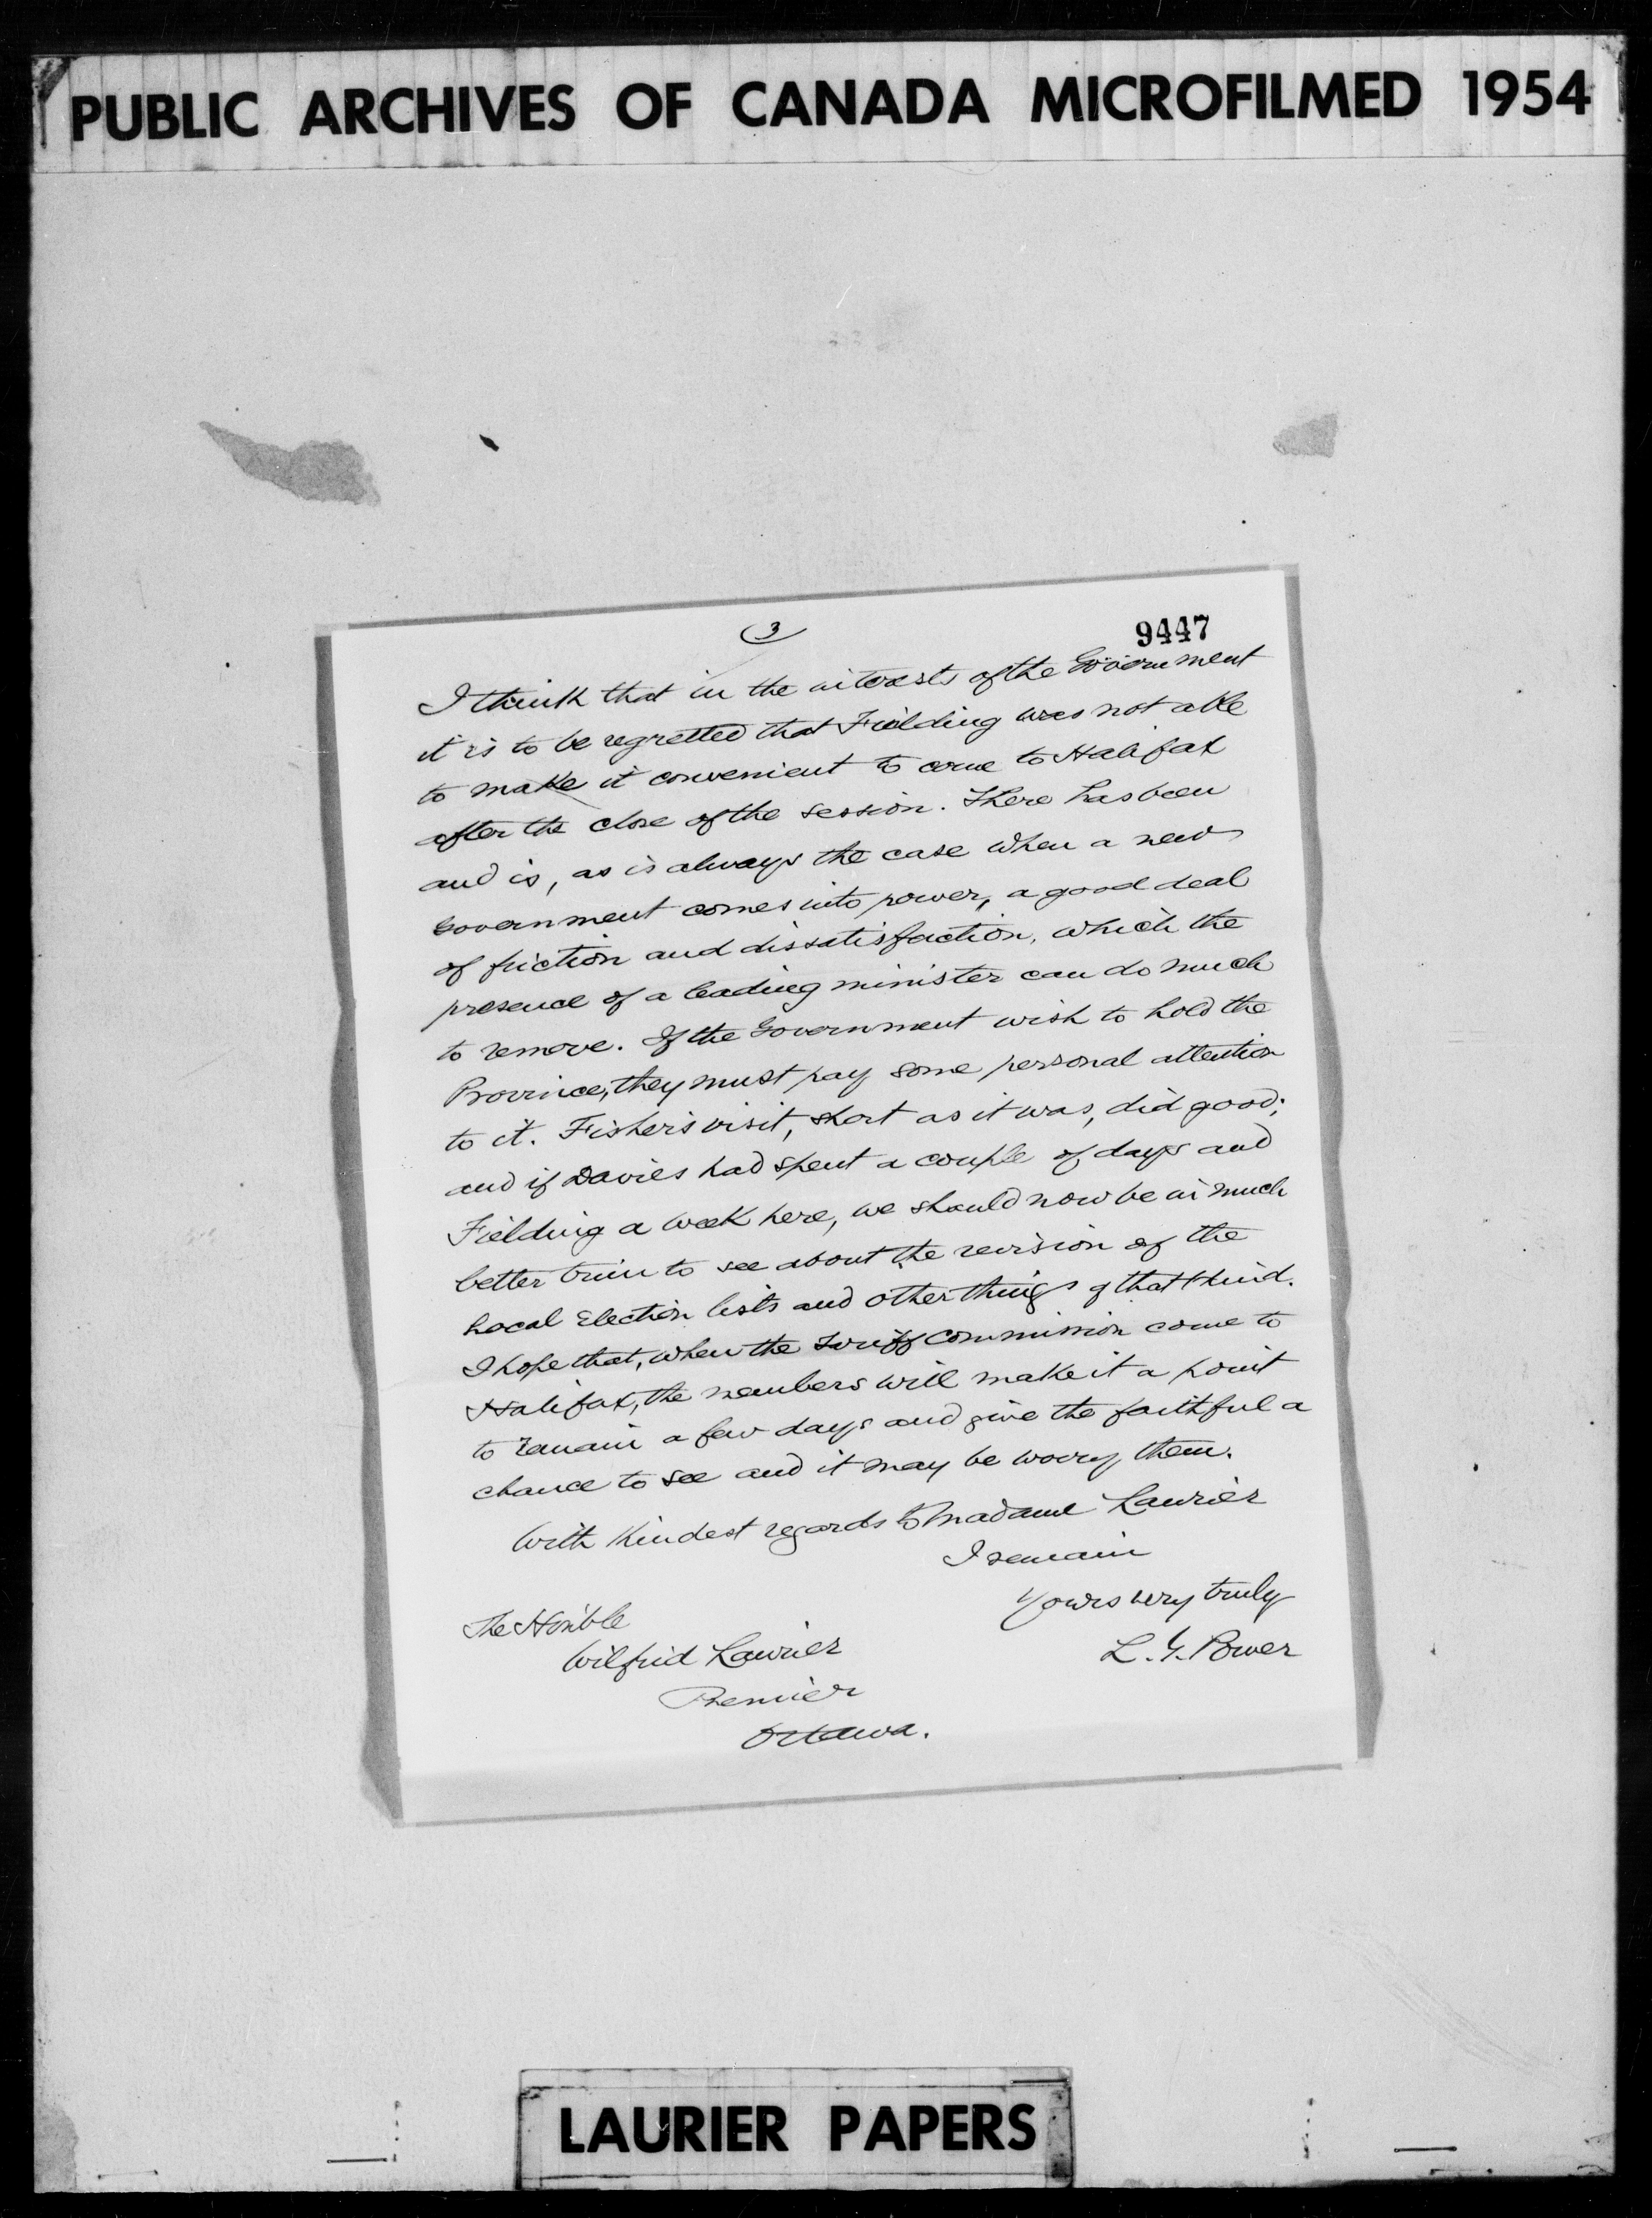 PUBLIC ARCHIVES OF CANADA MICROFILMED 1954
3
9447
I think that in the interests of the Government
it is to be regretted that Fielding was not able
to make it convenient to come to Halifax
after the close of the session. There has been
and is, as is always the case when a new
Government comes into power, a good deal
of friction and dissatisfaction, which the
presence of a leading minister can do much
to remove. If the Government wish to hold the
Province, they must pay some personal attention
to it. Fisher's visit, short as it was, did good;
and if Davies had spent a couple of days and
Fielding a week here, we should now be in much
better trim to see about the revision of the
Local Election lists and other things of that kind.
I hope that, when the Tariff Commission come to
Halifax, the members will make it a point
to remain a few days and give the faithful a
chance to see and it may be worry them.
With kindest regards to Madame Laurier
I remain
Yours very truly
L. G. Power
The Honble
Wilfrid Laurier
Premier
Ottawa.
LAURIER PAPERS